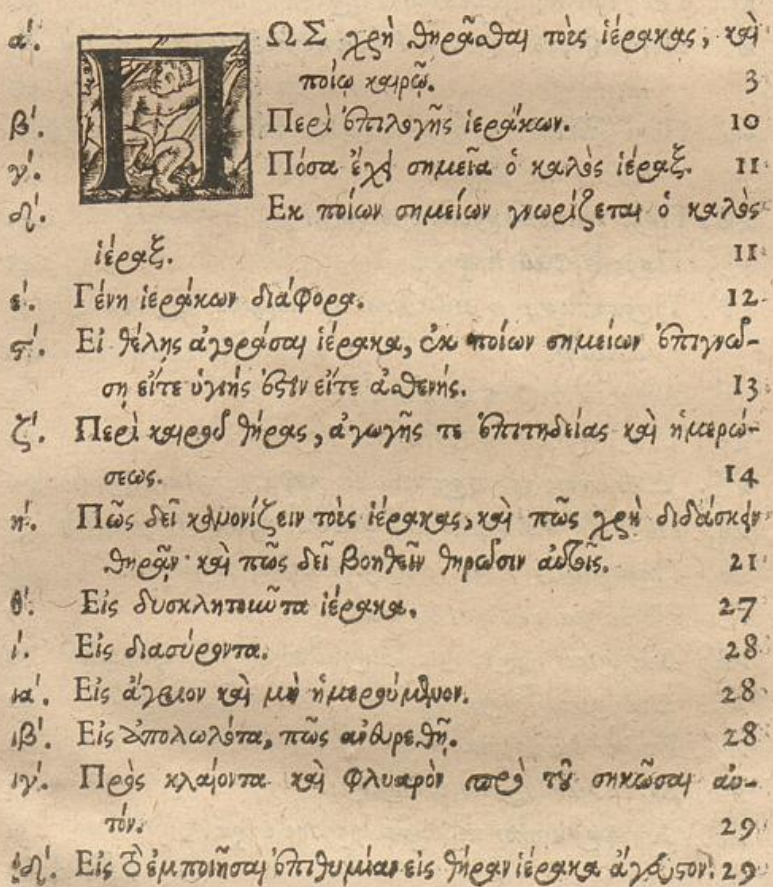 α΄. ΠΩΣ χρὴ θηρᾶσθαι τοὺς ἱέρακας, καὶ
ποίῳ καιρῷ. 3
β΄. Περὶ ἐπιλογῆς ἱεράκων. 10
γ΄. Πόσα ἔχει σημεῖα ὁ καλὸς ἱέραξ. 11
δ΄. Εκ ποίων σημείων γνωρίζεται ὁ καλὸς
ἱέραξ. 11
ε΄. Γένη ἱεράκων διάφορα. 12
ϛ΄. Εἰ θέλῃς ἀγοράσαι ἱέρακα, ἐκ ποίων σημείων ἐπιγνώ-
σῃ εἴτε ὑγιής ἐστιν εἴτε ἀσθενής. 13
ζ΄. Περὶ καιροῦ θήρας, ἀγωγῆς τε ἐπιτηδείας καὶ ἡμερώ-
σεως. 14
η΄. Πῶς δεῖ καμονίζειν τοὺς ἱέρακας, καὶ πῶς χρὴ διδάσκειν
θηρᾷν· καὶ πῶς δεῖ βοηθεῖν θηρῶσιν αὐτοῖς. 21
θ΄. Εἰς δυσκλητοιῶτα ἱέρακα. 27
ι΄. Εἰς διασύροντα. 28
ια΄. Εἰς ἄγριον καὶ μὴ ἡμερούμενον. 28
ιβ΄. Εἰς ἀπολωλότα, πῶς ἀνευρεθῇ. 28
ιγ΄. Πρὸς κλαίοντα καὶ φλυαρὸν πρὸ τοῦ σηκῶσαι αὐ-
τόν. 29
ιδ΄. Εἰς τὸ ἐμποιῆσαι ἐπιθυμίαν εἰς θήραν ἱέρακα ἄγευστον. 29